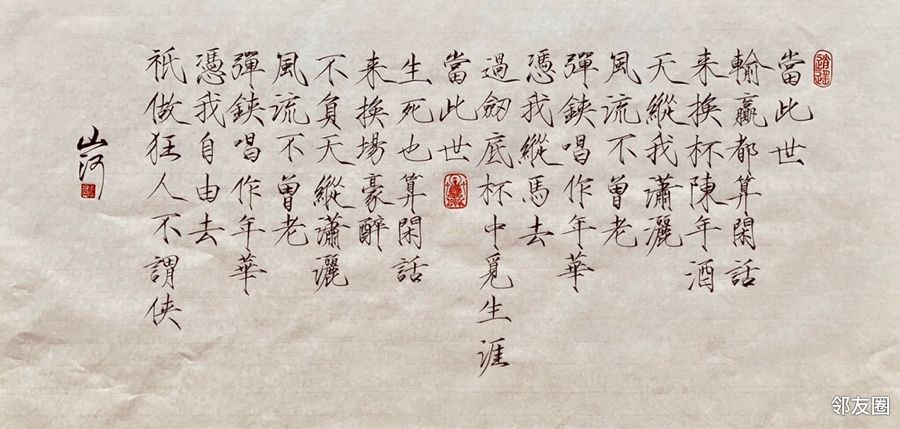 當此世
輸贏都算閑話
来換杯陳年酒
天縱我瀟灑
風流不曾老
彈鋏唱作年華
憑我縱馬去
過劒底杯中覓生涯
當此世
生死也算閑話
来換場豪醉
不負天縱瀟灑
風流不曾老
彈鋏唱作年華
憑我自由去
祇做狂人不謂俠
山河
邻友圈